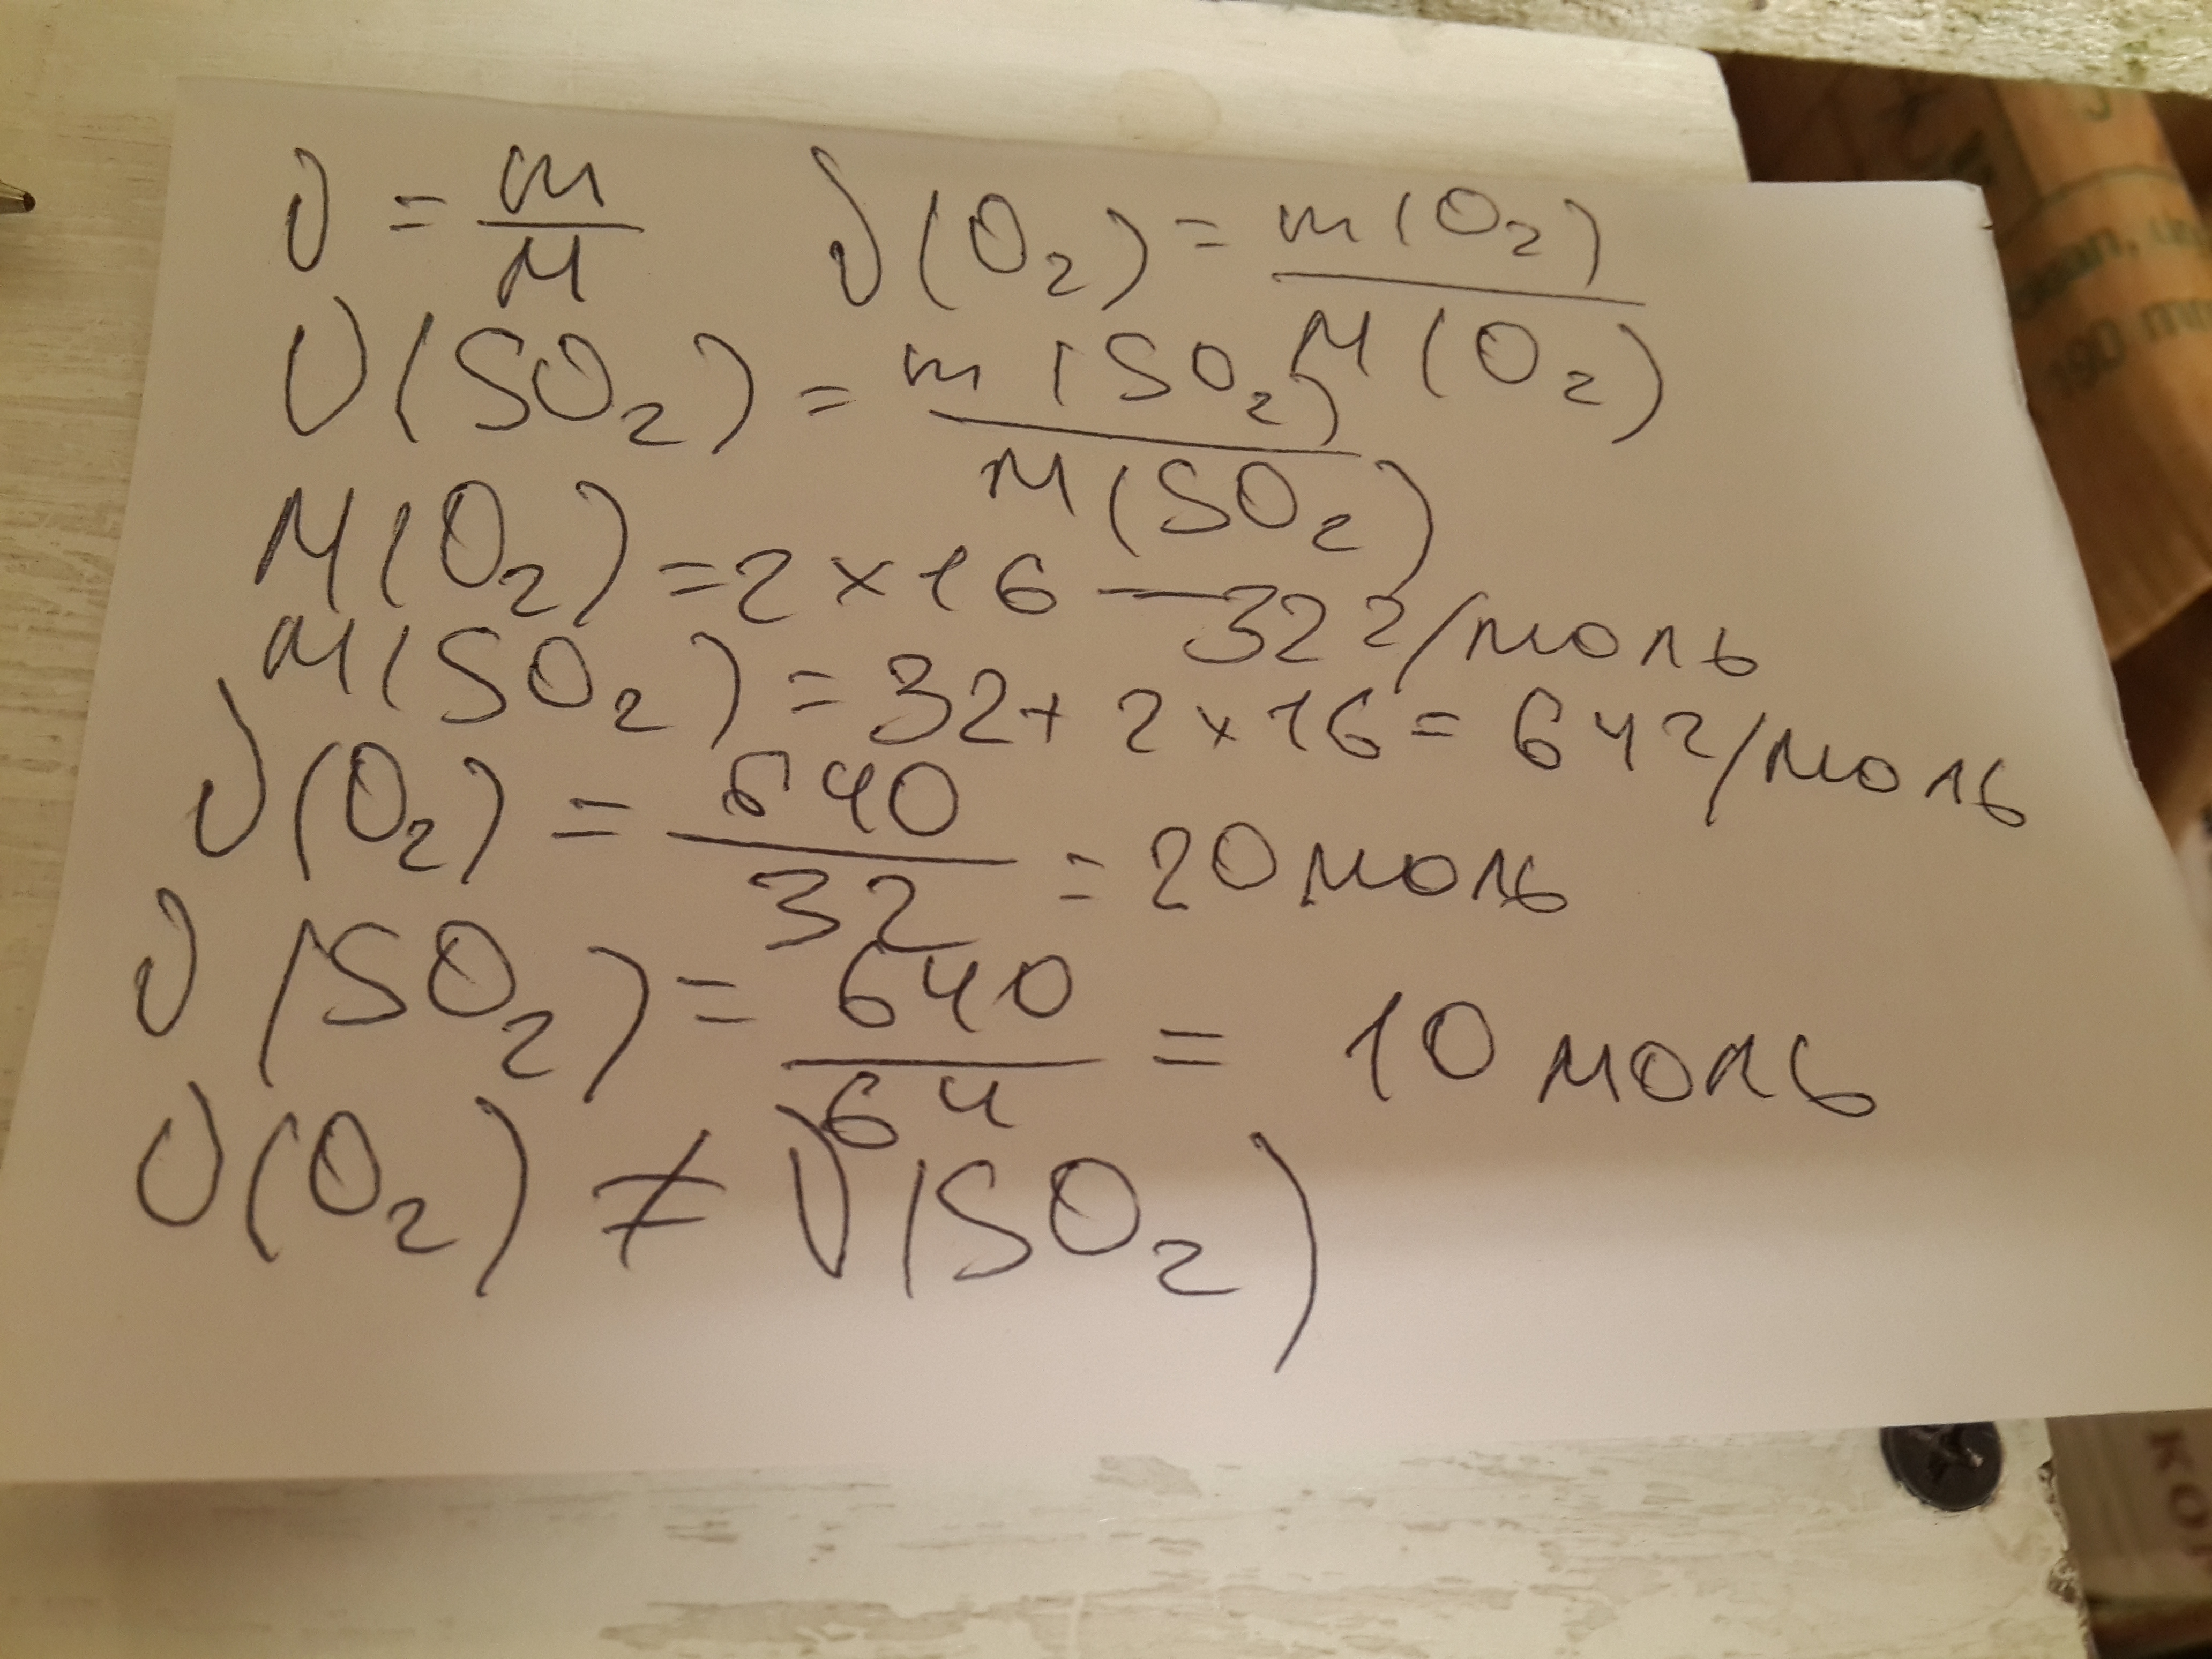 ν = m/M    ν(O₂) = m(O₂)/M(O₂)
ν(SO₂) = m(SO₂)/M(SO₂)
M(O₂) = 2 × 16 — 32 г/моль
M(SO₂) = 32 + 2 × 16 = 64 г/моль
ν(O₂) = 640/32 = 20 моль
ν(SO₂) = 640/64 = 10 моль
ν(O₂) ≠ ν(SO₂)
190
КОР